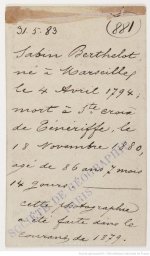 31.5.83
(881)
Sabin Berthelot,
né à Marseille,
le 4 Avril 1794,
mort à Ste croix
de Ténériffe, le
18 Novembre 1880,
agé de 86 ans 7 mois
14 jours.
SOCIÉTÉ DE GÉOGRAPHIE
PARIS
cette photographie
a été faite dans le
courant de 1879.